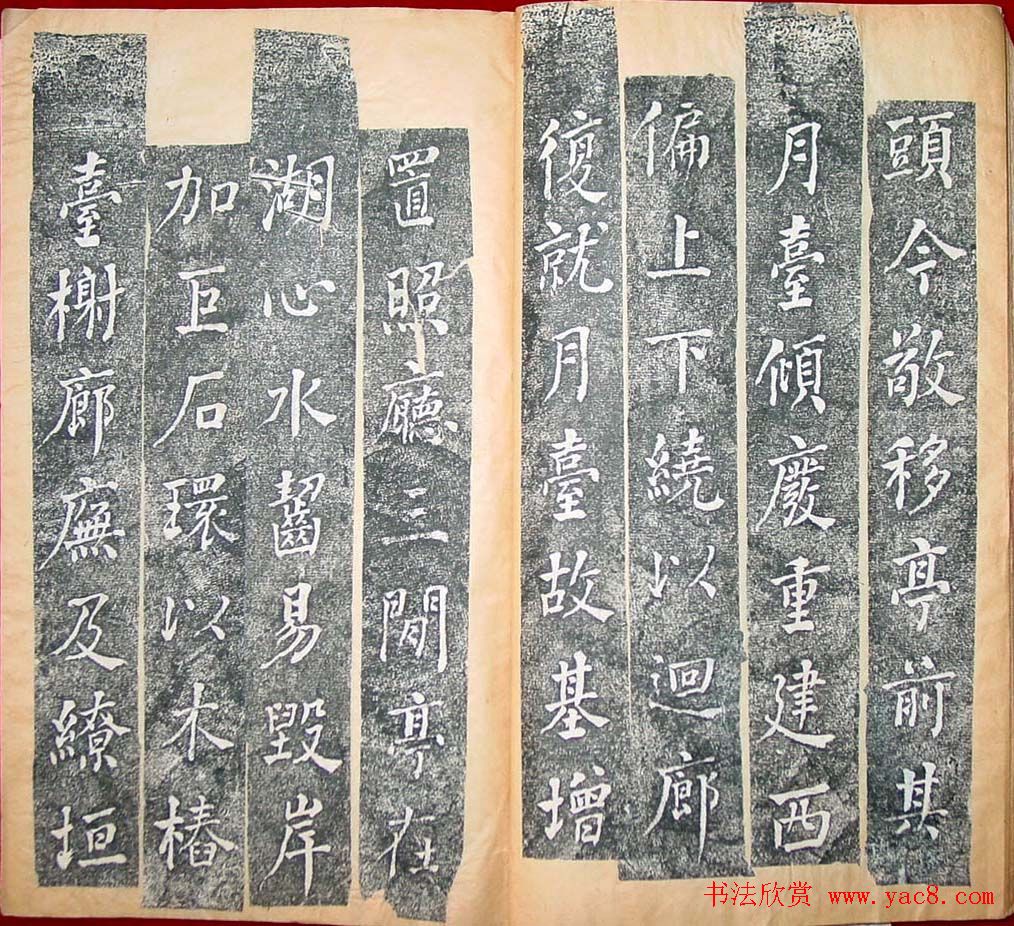 頭今敬移亭前其
月臺傾廢重建西
偏上下繞以迴廊
復就月臺故基增
置照廳三間亭在
湖心水齧易毀岸
加巨石環以木樁
臺榭廊廡及繚垣
书法欣赏 www.yac8.com